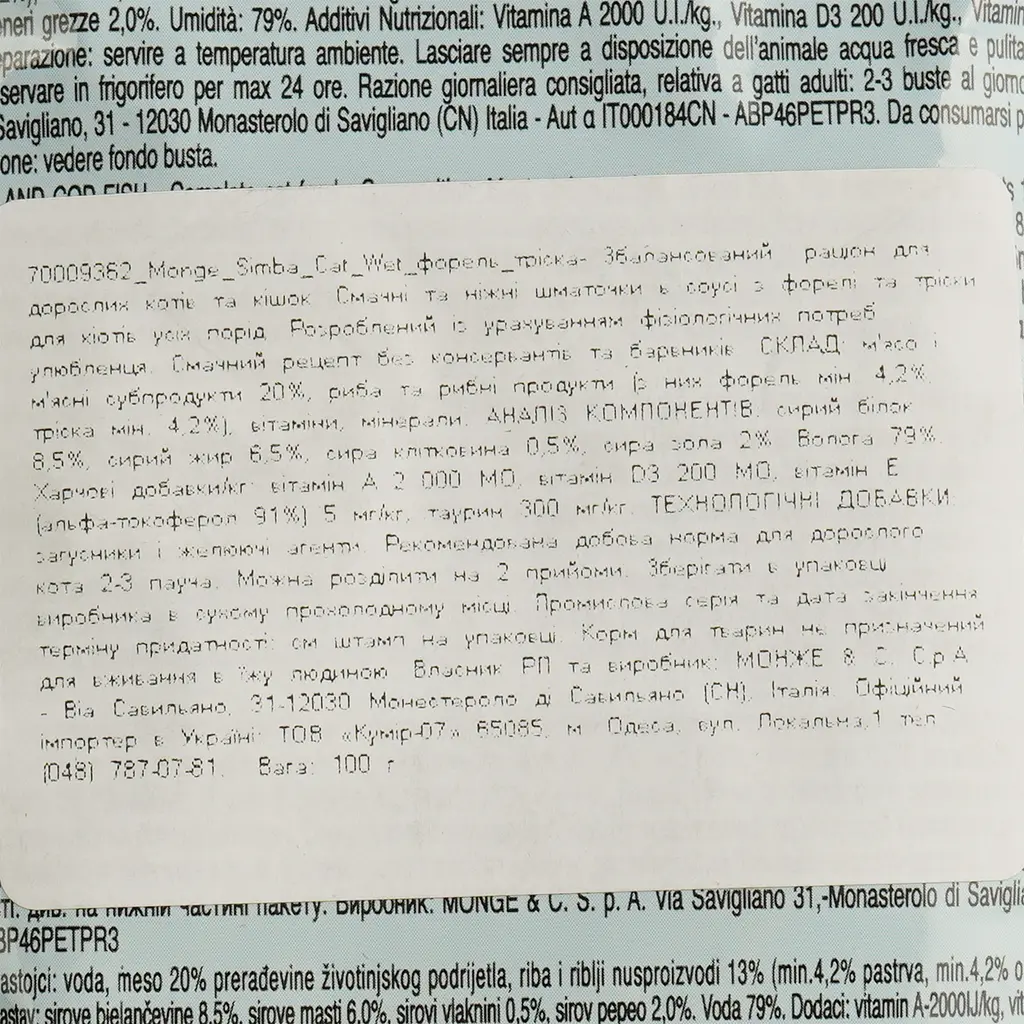 neri grezze 2,0%. Umidità: 79%. Additivi Nutrizionali: Vitamina A 2000 U.I./kg., Vitamina D3 200 U.I./kg., Vitamin
parazione: servire a temperatura ambiente. Lasciare sempre a disposizione dell'animale acqua fresca e pulita
servare in frigorifero per max 24 ore. Razione giornaliera consigliata, relativa a gatti adulti: 2-3 buste al giorno
Savigliano, 31 - 12030 Monasterolo di Savigliano (CN) Italia - Aut α IT000184CN - ABP46PETPR3. Da consumarsi p
one: vedere fondo busta.
AND COD FISH
70009362_Monge_Simba_Cat_Wet_форель_тріска- Збалансований раціон для
дорослих котів та кішок. Смачні та ніжні шматочки в соусі з форелі та тріски
для котів усіх порід. Розроблений із урахуванням фізіологічних потреб
улюбленця. Смачний рецепт без консервантів та барвників. СКЛАД: м'ясо і
м'ясні субпродукти 20%, риба та рибні продукти (з них форель мін. 4,2%,
тріска мін. 4,2%), вітаміни, мінерали. АНАЛІЗ КОМПОНЕНТІВ: сирий білок
8,5%, сирий жир 6,5%, сира клітковина 0,5%, сира зола 2%. Волога 79%.
Харчові добавки/кг: вітамін А 2 000 МО, вітамін D3 200 МО, вітамін Е
(альфа-токоферол 91%) 5 мг/кг, таурин 300 мг/кг. ТЕХНОЛОГІЧНІ ДОБАВКИ:
загусники і желюючі агенти. Рекомендована добова норма для дорослого
кота 2-3 пауча. Можна розділити на 2 прийоми. Зберігати в упаковці
виробника в сухому прохолодному місці. Промислова серія та дата закінчення
терміну придатності: см штамп на упаковці. Корм для тварин не призначений
для вживання в їжу людиною. Власник РП та виробник: МОНЖЕ & С. С.р.А
- Віа Савильяно, 31-12030 Монестероло ді Савильяно (СН), Італія. Офіційний
імпортер в Україні: ТОВ «Кумір-07» 65085, м. Одеса, вул. Локальна,1 тел.
(048) 787-07-81. Вага: 100 г
ті. див. на нижній частині пакету. Виробник: MONGE & C. S. p. A. Via Savigliano 31,-Monasterolo di Savigli
BP46PETPR3
astojci: voda, meso 20% prerađevine životinjskog podrijetla, riba i riblji nusproizvodi 13% (min.4,2% pastrva, min.4,2% o
astav: sirove bjelančevine 8,5%, sirove masti 6,0%, sirovi vlaknini 0,5%, sirov pepeo 2,0%. Voda 79%. Dodaci: vitamin A-2000IJ/kg, vit